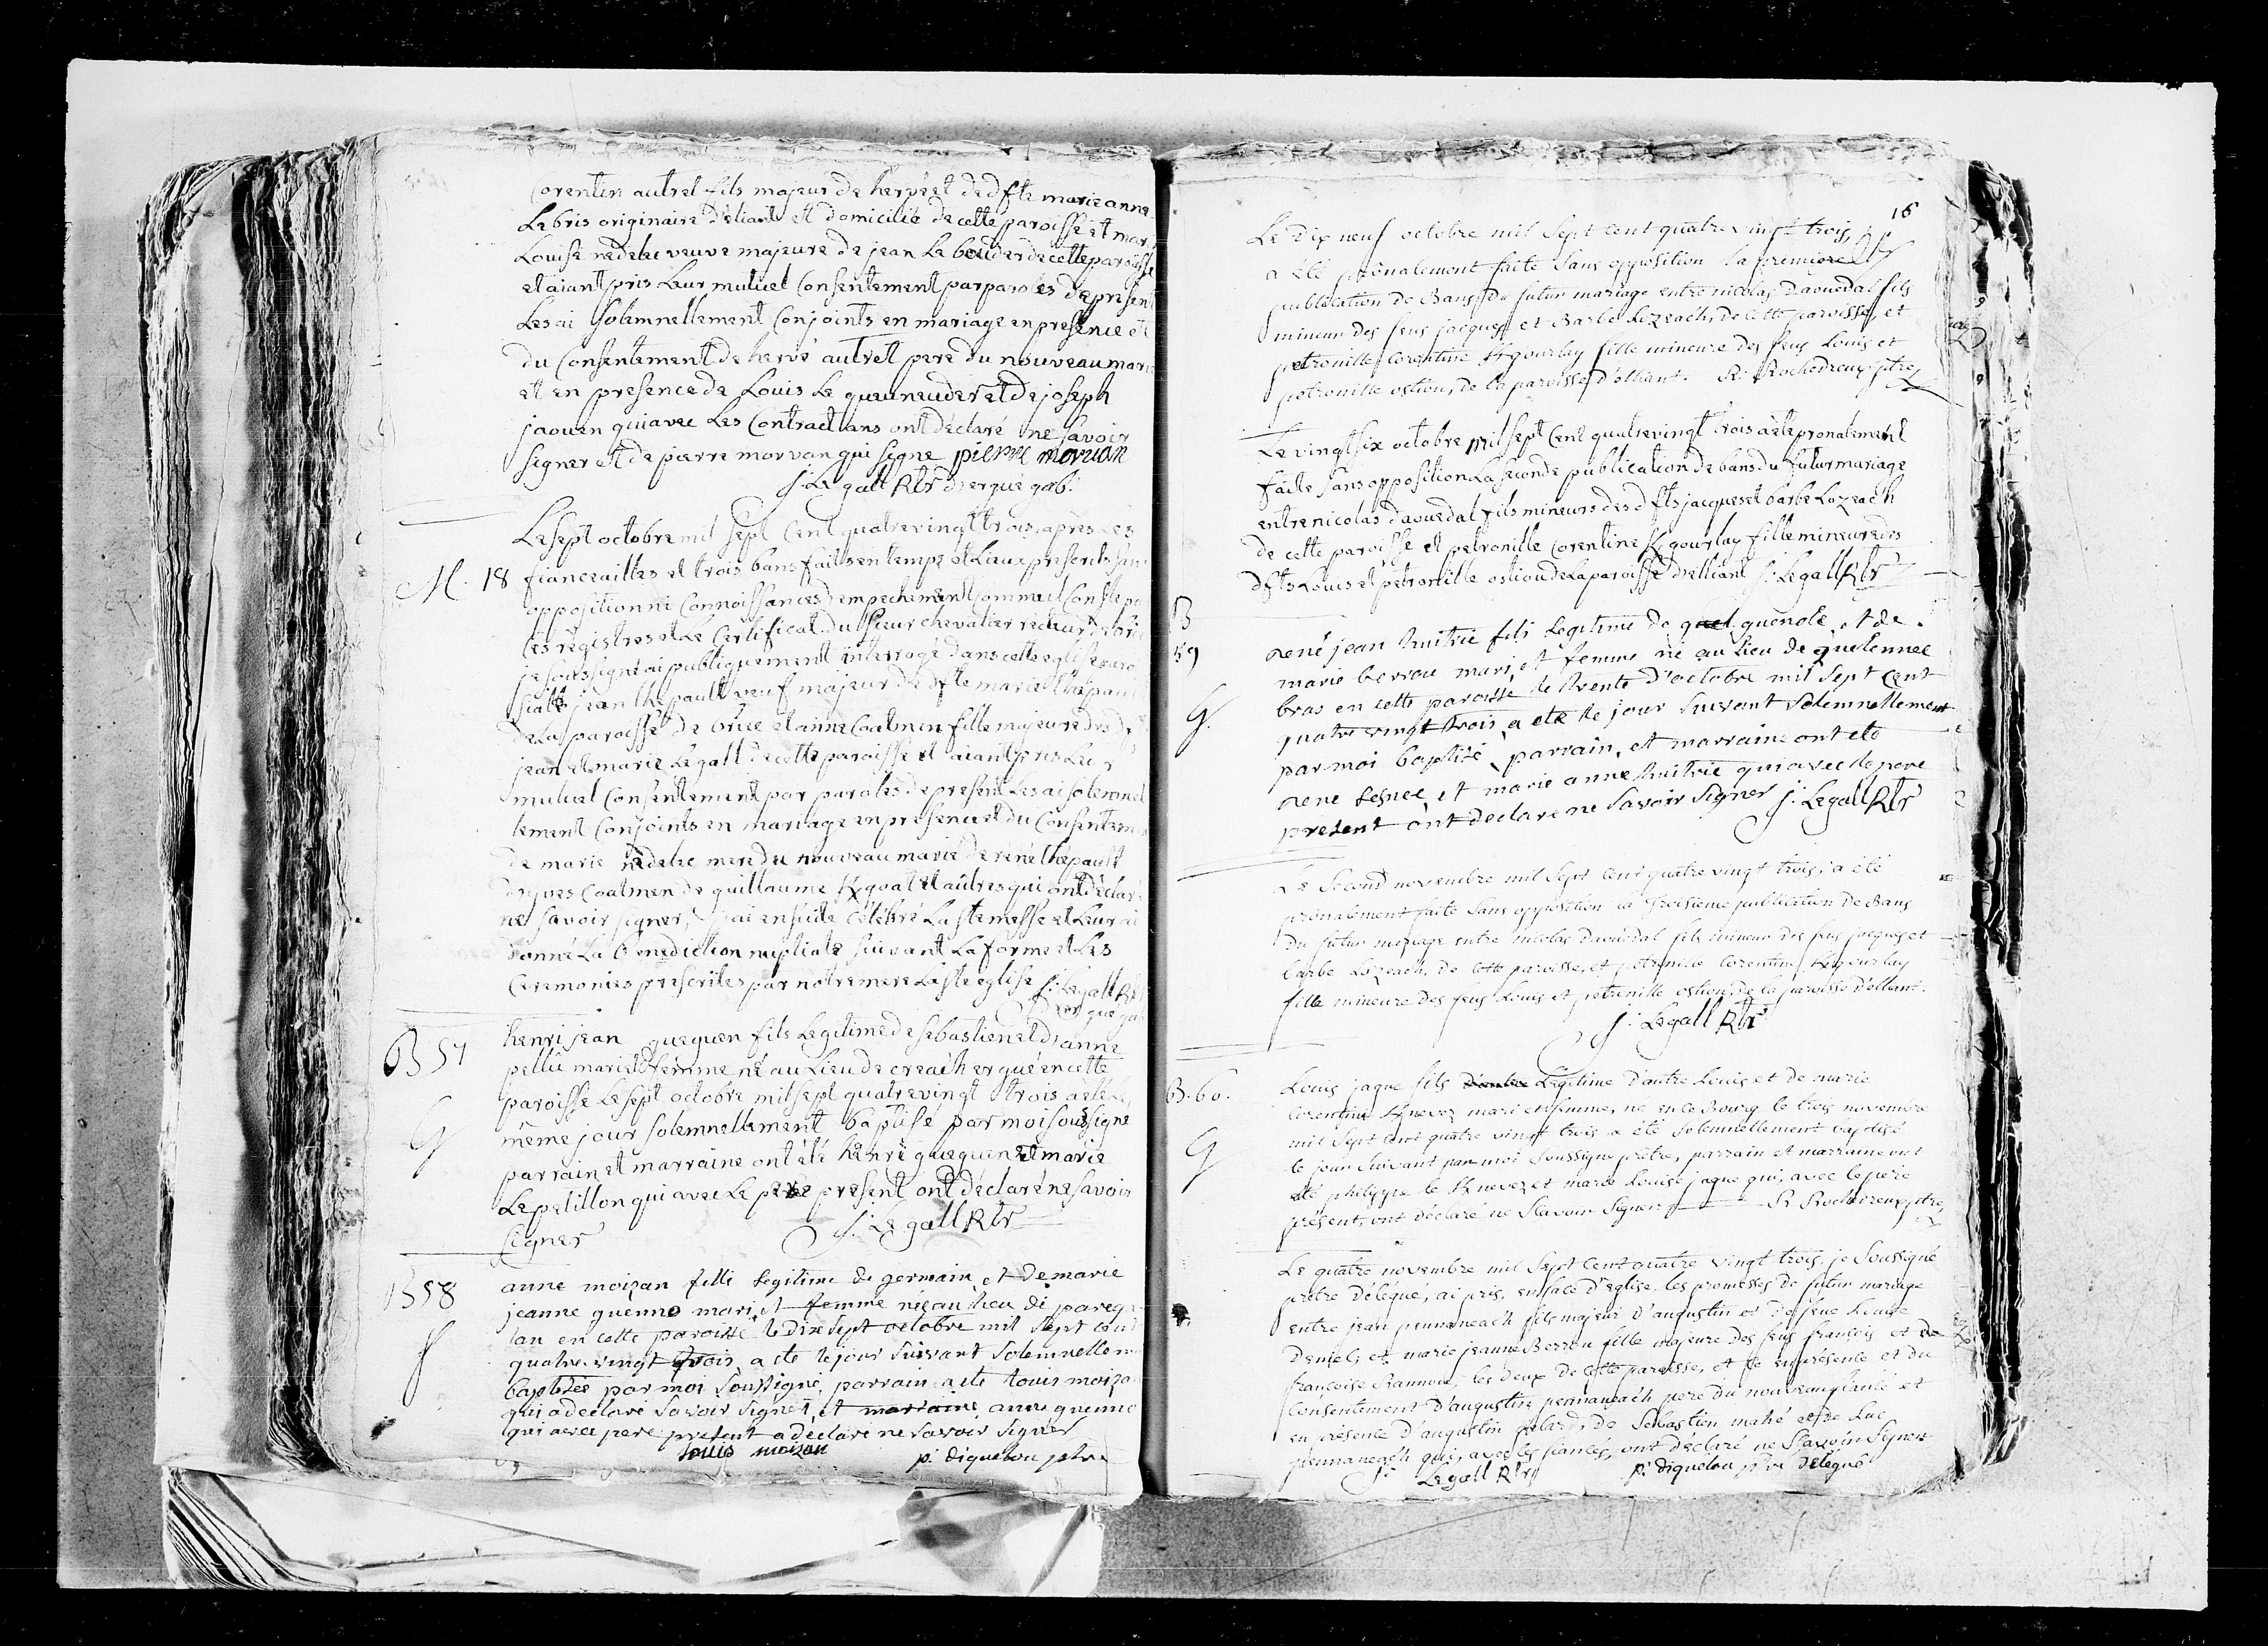 Corentin autret fils majeur de hervé et de dfte marie anne
Le bris originaire d'eliant et domicilié de cette paroisse et mari
Louise nedelec veuve majeure de jean Le bouder de cette paroisse
et aiant pris Leur mutuel Consentement par paroles de present
Les ai Solemnellement Conjoints en mariage en presence et
du Consentement de hervé autret pere du nouveau marié
et en presence de Louis Le queuneuder et de joseph
jaouen qui avec Les Contractans ont déclaré ne Savoir
signer et de pierre morvan qui signe pierre morvan
j: Le gall Rtr d'ergué gab:
Le sept octobre mil sept Cent quatrevingt trois, après Les
M. 18 fiancailles et trois bans faits en temps et Lieux prescrits sans
opposition ni Connoissances d'empechement Comme il Conste par
Les régistres et Le Certificat du Sieur chevalier recteur de briec
je soussigné ai publiquement interrogé dans cette eglise paro
siale jean thepault veuf majeur de dfte marie
de La paroisse de briec et anne Coatmen fille majeure des d
jean et marie Le gall de cette paroisse et aiant pris Leur
mutuel Consentement par paroles de present Les ai solemnel
lement Conjoints en mariage en presence et du Consentement
de marie nedelec mere du nouveau marié de réné thepault
d'yves Coatmen de guillaume Kgoat et autres qui ont déclaré
ne savoir signer, j'ai ensuite Célébré La ste messe et Leur ai
donné La Benediction nuptiale suivant La forme et Les
Ceremonies prescrites par notre mere La ste eglise j: Le gall Rtr
d'ergué gab
B 57 henri jean gueguen fils Legitime de sebastien et d'anne
pellû mari et femme né au Lieu de creac'h ergué en cette
paroisse Le sept octobre mil sept quatrevingt trois a été Le
G même jour solemnellement baptisé par moi soussigné
parrain et marraine ont été henri gueguen et marie
Le petillon qui avec Le pere present ont déclaré ne savoir
signer j: Le gall Rtr
B 58 anne moizan fille Legitime de germain et de marie
jeanne guenno mari et femme née au lieu de pareg
lan en cette paroisse le dix sept octobre mil sept cent
f quatre vingt trois a ete le jour suivant solemnellement
baptisée par moi soussigné, parrain a ete louis moizan
qui a declaré savoir signer, et marraine anne guenno
qui avec pere present a declaré ne savoir signer
louis moizan p: diquelou ptre
16
Le dix neuf octobre mil Sept Cent quatre vingt trois,
a été prônalement faite Sans opposition la premiere
publication de Bans du futur mariage entre nicolas Daouedal fils
mineur des feus jacques et Barbe Lozeach, de cette paroisse, et
petronille Corentine Kgourlay fille mineure des feus Louis et
petronille ostiou, de la paroisse d'elliant. R: Rochedreux ptre
Le vingt six octobre mil sept Cent quatrevingt trois a été pronalement
faite sans opposition La seconde publication de bans du futur mariage
entre nicolas daouedal fils mineurs des dfts jacques et barbe Lozeach
de cette paroisse et petronille Corentine Kgourlay fille mineure des
dfts Louis et petronille ostiou de La paroisse d'elliant j: Le gall Rtr
B
59 René jean huitrie fils Legitime de guenolé et de
marie berrou mari et femme né au Lieu de quelennec
bras en cette paroisse le trente d'octobre mil sept cent
G. quatre vingt trois a ete le jour suivant solemnellement
par moi baptisé, parrain, et marraine ont ete
rene et marie anne huitrie qui avec le pere
present ont declare ne savoir signer j: Le gall Rtr
Le Second novembre mil Sept Cent quatre vingt trois, a été
prônalement faite Sans opposition la troisieme publication de Bans
du futur mariage entre nicolas Daouedal fils mineur des feus jacques et
barbe Lozeach, de cette paroisse, et petronille Corentine Kgourlay
fille mineure des feus Louis et petronille ostiou, de la paroisse d'elliant.
j: Le gall Rtr
B. 60. Louis jaque fils Legitime d'autre Louis et de marie
Corentine Knevez mari et femme, né en ce Bourg le trois novembre
mil Sept Cent quatre vingt trois a été Solemnellement baptisé
G le jour Suivant par moi Soussigné prêtre, parrain et marraine ont
été philippe le Knevez et marie Louise jaque qui, avec le pere
présent, ont déclaré ne Scavoir Signer R Rochedreux ptre
Le quatre novembre mil Sept Cent quatre vingt trois, je Soussigné
prêtre délégué, ai pris, en face d'eglise, les promesses de futur mariage
entre jean pennaneach fils majeur d'augustin et de feue Louise
Deniel, et marie jeanne Berrou fille majeure des feus françois et de
françoise Rannou, les deux de cette paroisse, et ce en présence et du
Consentement d'augustin pennaneach pere du nouveau fiancé et
en présence d'augustin de Sébastien mahé et de Luc
pennaneach qui, avec les fiancés, ont déclaré ne Scavoir Signer
j: Le gall Rtr p: diquelou ptre délégué